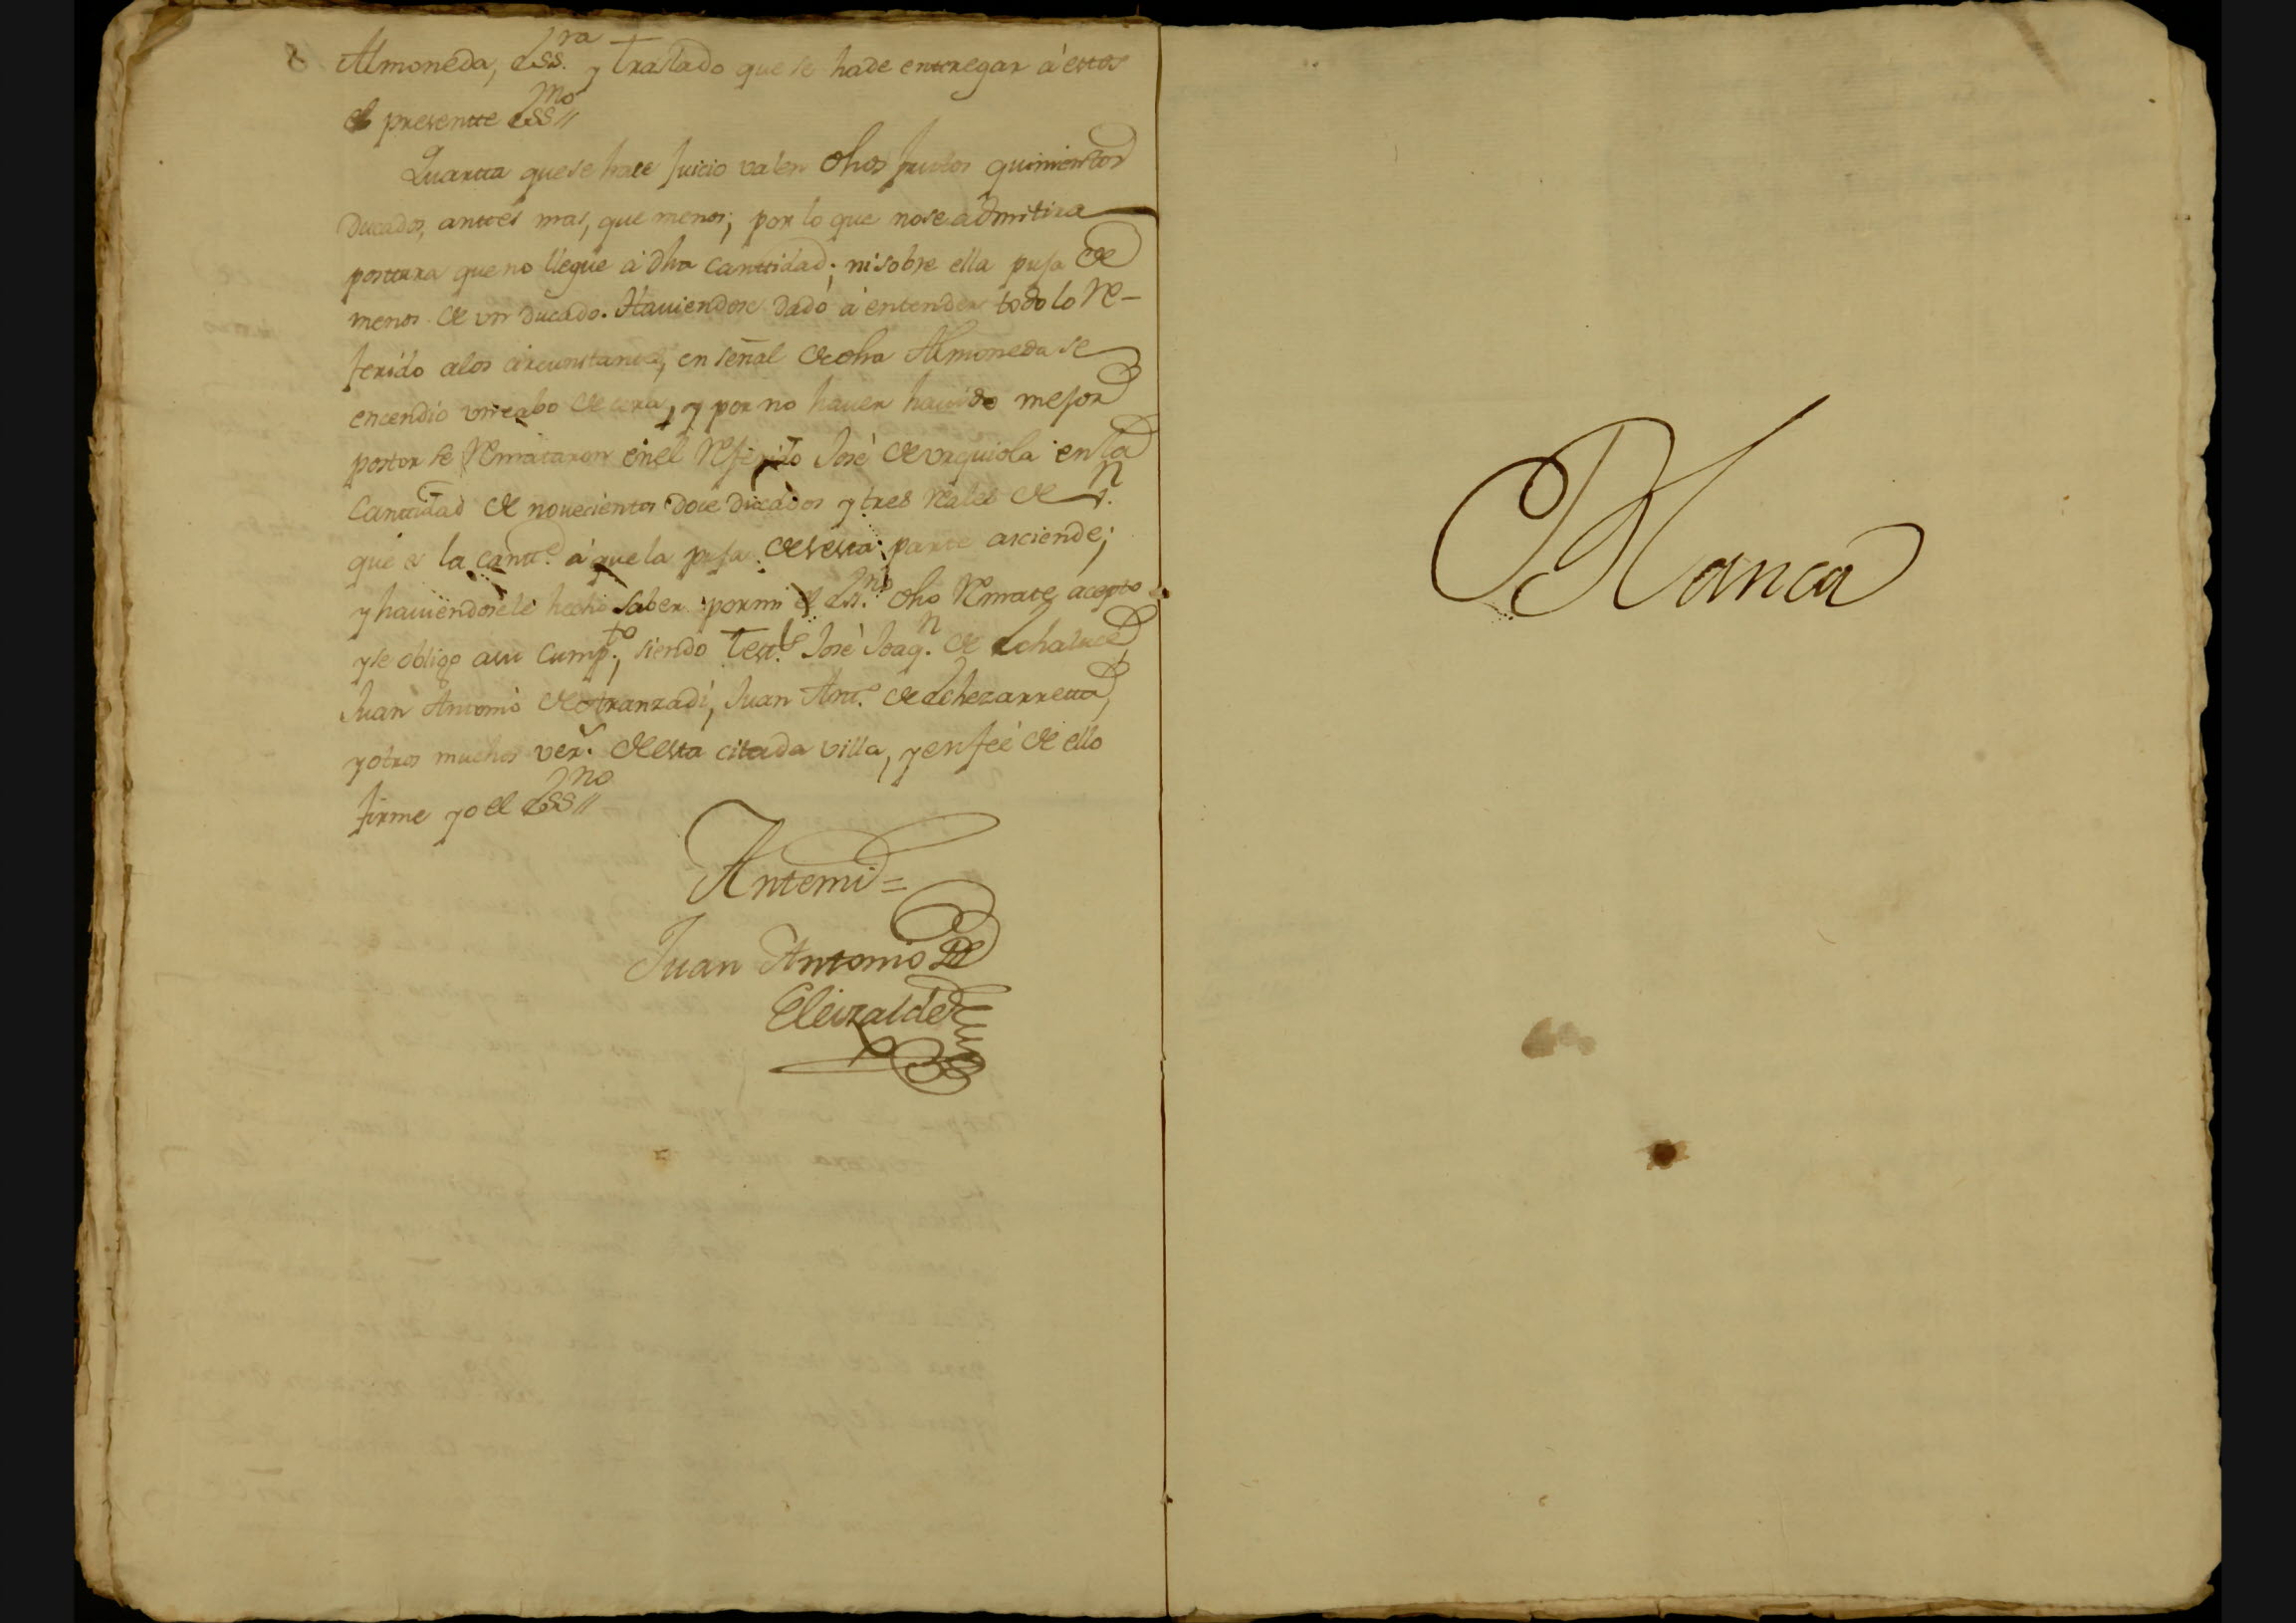 Almoneda, Ess.ra y traslado que se hade entregar à éstos
el presentte Ess.no //
Quartta que se hace Juicio valen dhos frutos quinientos
Ducados, anttes mas, que menos; por lo que nose admitira
posttura que no llegue à dha canttidad; ni sobre ella puja de
menos de un Ducado. Haviendose dado à entender todo lo re-
ferido alos circunstantes, en señal de dha Almoneda se
encendio un cabo de cera, y por no haver havido mejor
postor se remataron en el referido José de Urquiola en la
Canttidad de novecientos doce ducados y tres reales de v.n
que es la cantt.d à que la puja de esta parte asciende;
y haviendosele hecho saber por mi el Ess.no dho remate, acepto
y se obligo asu cump.to, siendo test.s José Joaq.n de Echaluce,
Juan Antonio de Aranzadi, Juan Ant.o de Echezarretta,
y otros muchos vez.s de esta citada villa, y en feé de ello
firme yo el Ess.no //
Antemi =
Juan Antonio de
Eleizalde
Blanca